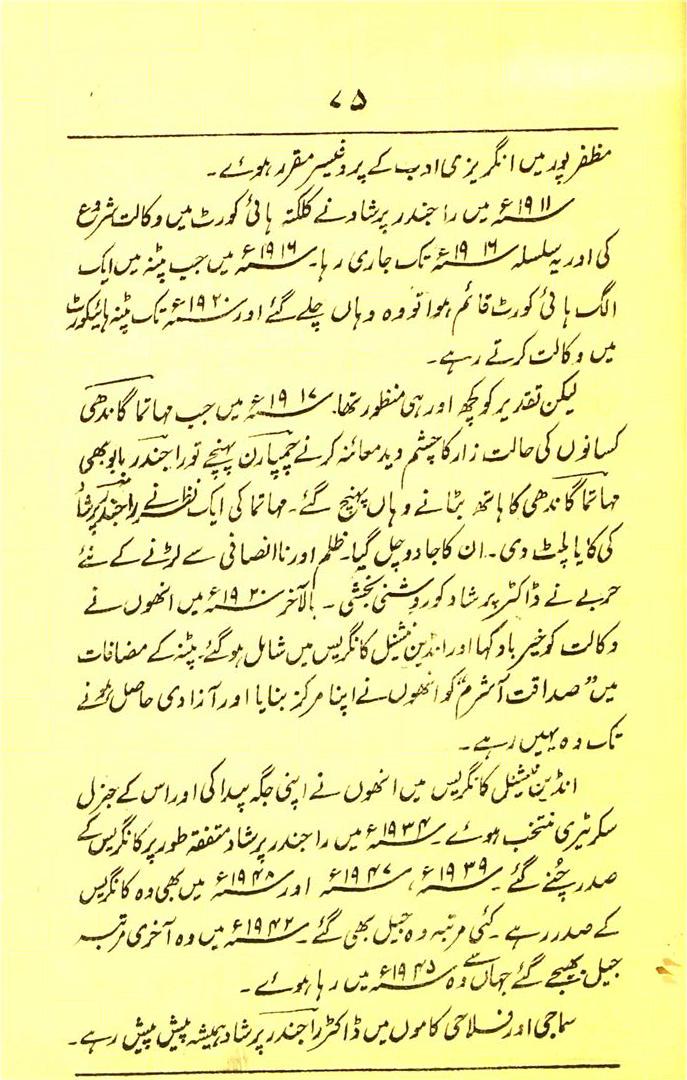 ۷۵
مظفر پور میں انگریزی ادب کے پروفیسر مقرر ہوئے۔
۱۹۱۱ء میں راجندر پرشاد نے کلکتہ ہائی کورٹ میں وکالت شروع
کی اور یہ سلسلہ ۱۹۱۶ء تک جاری رہا۔ ۱۹۱۶ء میں جب پٹنہ میں ایک
الگ ہائی کورٹ قائم ہوا تو وہ وہاں چلے گئے اور ۱۹۲۰ء تک پٹنہ ہائیکورٹ
میں وکالت کرتے رہے۔
لیکن تقدیر کو کچھ اور ہی منظور تھا۔ ۱۹۱۷ء میں جب مہاتما گاندھی
کسانوں کی حالت زار کا چشم دید معائنہ کرنے چمپارن پہنچے تو راجندر بابو بھی
مہاتما گاندھی کا ہاتھ بٹانے وہاں پہنچ گئے۔ مہاتما کی ایک نظر نے راجندر پرشاد
کی کایا پلٹ دی۔ ان کا جادو چل گیا۔ ظلم اور ناانصافی سے لڑنے کے نئے
حربے نے ڈاکٹر پرشاد کو روشنی بخشی۔ بالآخر ۱۹۲۰ء میں انھوں نے
وکالت کو خیر باد کہا اور انڈین نیشنل کانگریس میں شامل ہو گئے۔ پٹنہ کے مضافات
میں "صداقت آشرم" کو انھوں نے اپنا مرکز بنایا اور آزادی حاصل ہونے
تک وہ یہیں رہے۔
انڈین نیشنل کانگریس میں انھوں نے اپنی جگہ پیدا کی اور اس کے جنرل
سکریٹری منتخب ہوئے۔ ۱۹۳۴ء میں راجندر پرشاد متفقہ طور پر کانگریس کے
صدر چنے گئے۔ ۱۹۳۹ء، ۱۹۴۷ء اور ۱۹۴۸ء میں بھی وہ کانگریس
کے صدر رہے۔ کئی مرتبہ وہ جیل بھی گئے۔ ۱۹۴۲ء میں وہ آخری مرتبہ
جیل بھیجے گئے جہاں سے وہ ۱۹۴۵ء میں رہا ہوئے۔
سماجی اور فلاحی کاموں میں ڈاکٹر راجندر پرشاد ہمیشہ پیش پیش رہے۔